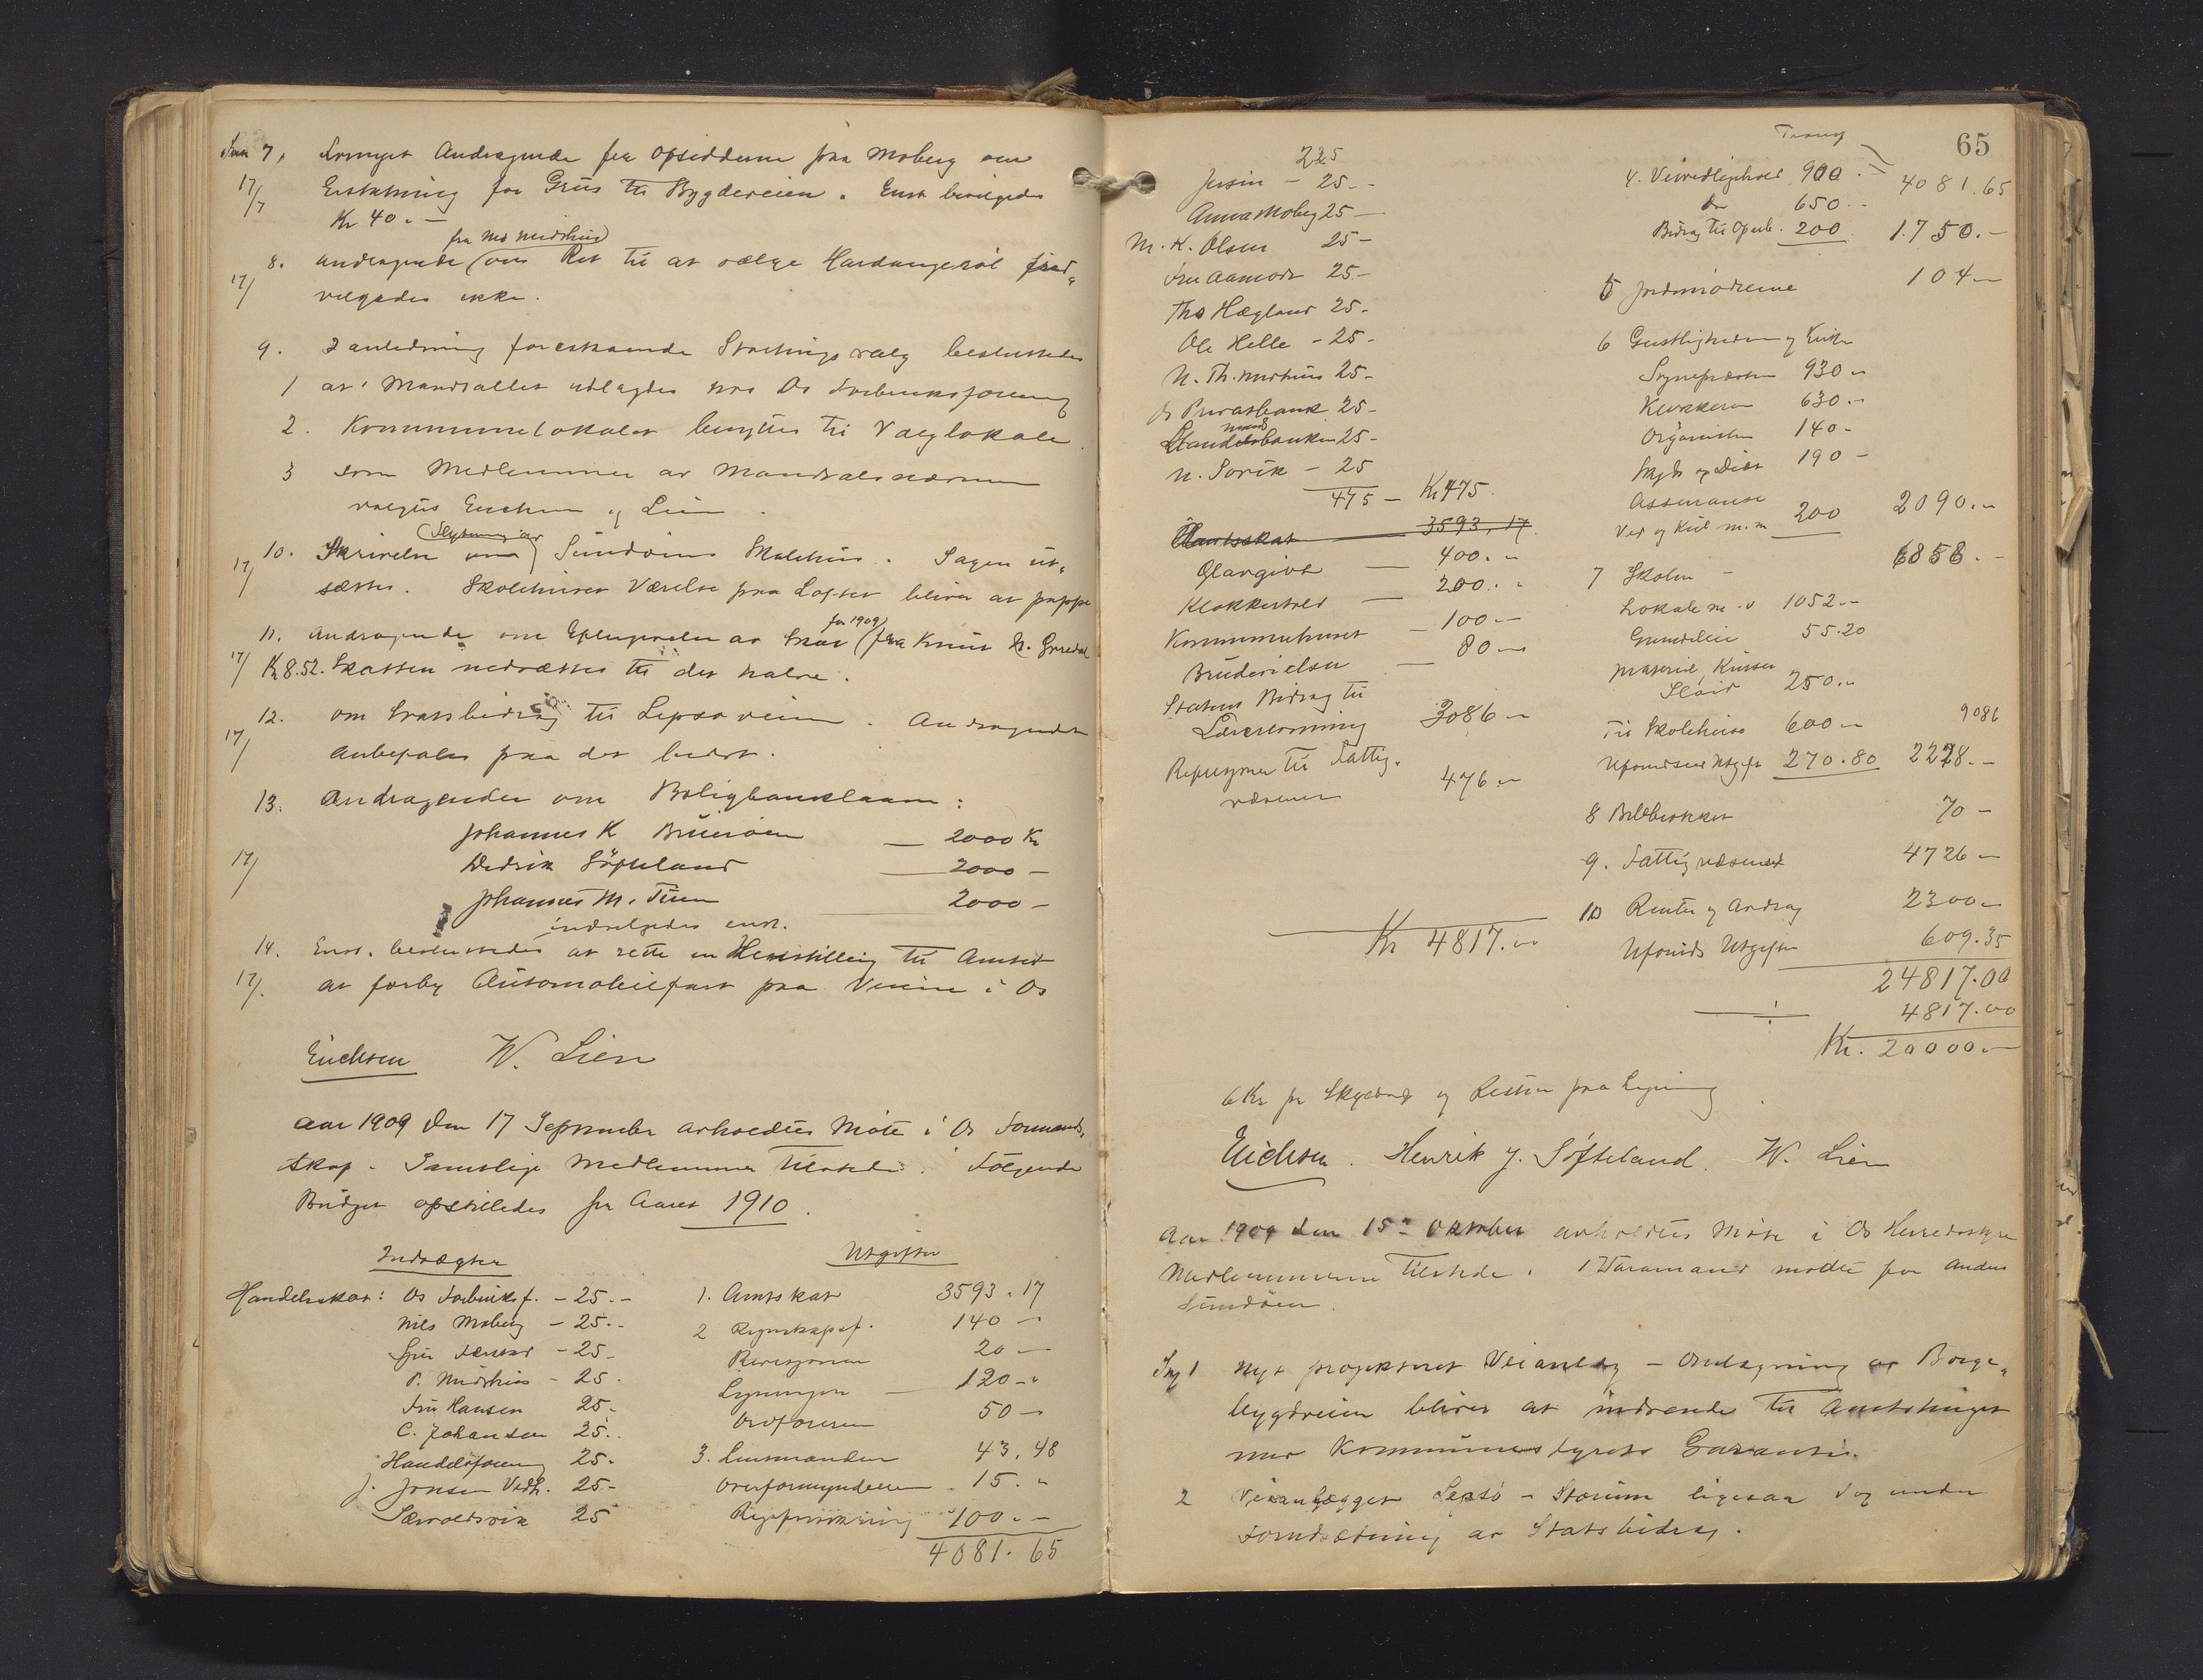 7. Fornyet Andragende fra Opsidderne paa Moberg om
17/7 Erstatning for Grus til Bygdeveien. Enst. bevilgedes
Kr 40.–
fra Ms Midthus
8. Andragende om Ret til at sælge Hardangerøl
17/ velgedes ikke.
9. I anledning forestaaende Stortingsvalg besluttedes
1 at Mandtallet utlægdes hos Os Forbruksforening
2. Kommunelokalet benyttes til Valglokale
3 Som Medlemmer av Mandtalsnævnen
valgtes Erichsen og Lien.
Flytning av
10. Skrivelse om Sundøens Skolehus. Sagen ut-
17/ sættes. Skolehusets Værelse paa Loftet bliver at pappe
for 1909
11. Andragende om Eftergivelse av Skat fra Knut N.
17/ Kr 8.52. Skatten nedsættes til det halve.
12. om Statsbidrag til Lepsøveien. Andragendet
17/ anbefales paa det bedste.
13. Andragender om Boligbanklaan:
Johannes K Bruarøen – 2000 Kr
17/ Didrik Søfteland – 2000 –
Johannes M. Tuen 2000 –
indvilgedes enst.
14. Enst. besluttedes at rette en Henstilling til Amtet
17/. at forby Automobilfart paa Veiene i Os
Erichsen W. Lien
Aar 1909 den 17 September avholdtes Møte i Os Formand-
skap. Samtlige Medlemmer tilstede. Følgende
Budget opstilledes for Aaret 1910.
Indtægter
Utgifter
Handelsskat: Os Forbruksf. – 25.–
Nils Moberg – 25.–
– 25 –
P. Midthus – 25.
Fru Hansen 25.
C. Johansen 25.
Handelsforening 25.
J. Jensen Vedh. 25 –
Særvoldsvik 25
1. Amtskat 3593.17
2 Regnskapsf. 140 –
Revisjonen 20 –
Ligningen – 120 –
Ordføreren 50 –
3. Lensmanden 43,48
Overformynderen 15.
100.–
4081.65
65
225
– 25.–
Anna Moberg 25 –
M. K. Olsen 25 –
Fru Aamodt 25.–
Ths Hægland 25.
Ole Helle – 25 –
N. Th. Midthus 25 –
Os Privatbank 25 –
Landmandsbanken 25 –
N. Sørvik – 25
475 – Kr 475.
Amtsskat – 3593,17
Ølavgivt – 400.–
Klokkerhold – 200.–
Kommunehuset – 100 –
Brudevielser – 80 –
Statens Bidrag til
Lærerlønning 3086 –
Refusjoner til Fattig-
væsenet 476 –
Kr 4817.00
Transp
4081.65
4. Veivedligehold 900.
do 650.–
Bidrag til Oparb. 200 1.750.–
5 Jordmødrene 104 –
6 Geistligheden og Kirke
Sognepræsten 930 –
Klokkeren 630 –
Organisten 140 –
Skyds og Diæt 190 –
Assuranse
Ved og Kul m.m 200 2090.–
7 Skolen – 6858.–
Lokale m.v 1052 –
Grundleie 55.20
Materiel, Kurser
Sløid 250.–
Til Skolehuse 600 – 9086
Uforudseet Utgift 270.80 2228.–
8 Biblioteket 70 –
9. Fattigvæsenet 4726 –
10 Renter og Avdrag 2300 –
Uforuds Utgifter 609.35
24817.00
÷ 4817.00
Kr. 20000.–
6 Kr pr Skyldmark og Resten paa Ligning
Erichsen. Henrik J. Søfteland. W. Lien
Aar 1909 den 15de Oktober avholdtes Møte i Os Herredsstyre
Medlemmerne tilstede. 1 Varamand mødte for Anders
Sundøen.
Sag 1 Nyt projekteret Veianlæg – Omlægning av Borge-
bygdveien bliver at indsende til Amtstinget
med Kommunestyrets Garanti.
2 Veianlægget Lepsø – Storum ligesaa dog under
Forudsætning av Statsbidrag.